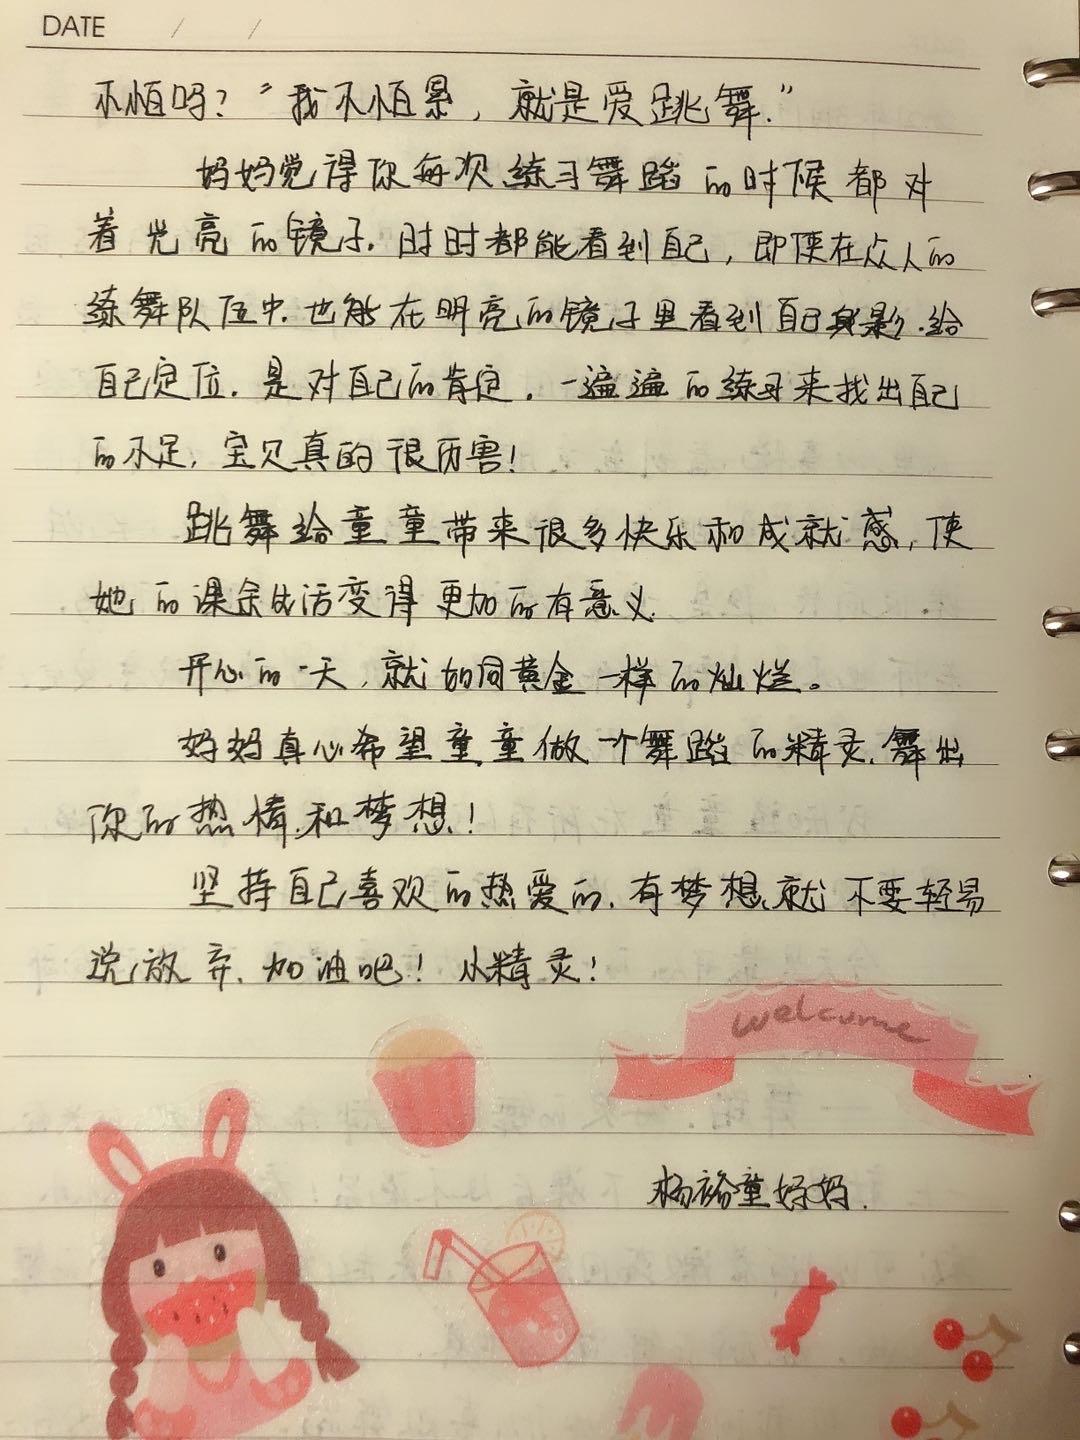 DATE / /
不怕吗？“我不怕累，就是爱跳舞.”
妈妈觉得你每次练习舞蹈的时候都对
着光亮的镜子.时时都能看到自己，即使在众人的
练舞队伍中.也能在明亮的镜子里看到自己身影.给
自己定位.是对自己的肯定.一遍遍的练习来找出自己
的不足,宝贝真的很厉害!
跳舞给童童带来很多快乐和成就感,使
她的课余生活变得更加的有意义.
开心的一天,就如同黄金一样的灿烂。
妈妈真心希望童童做一个舞蹈的精灵.舞出
你的热情和梦想!
坚持自己喜欢的热爱的.有梦想就不要轻易
说放弃.加油吧!小精灵!
welcome
杨裕童妈妈.